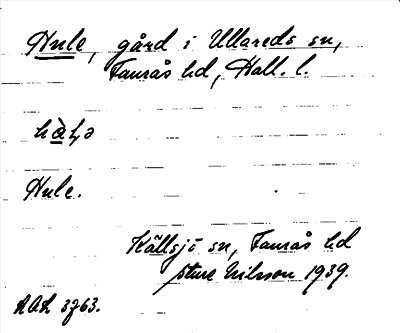 Hule, gård i Ullareds sn,
Faurås hd, Hall. l.
Hule.
Källsjö sn, Faurås hd
Sture Nilsson 1939.
AAL 3763.